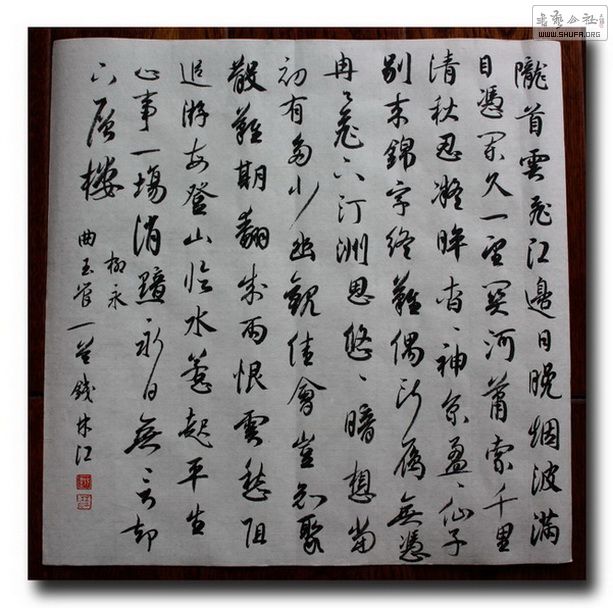 隴首雲飛江邊日晚烟波滿
目憑闌久一望關河蕭索千里
清秋忍凝眸杳、神京盈、仙子
別來錦字終難偶斷雁無憑
冉、飛下汀洲思悠、暗想當
初有多少幽歡佳會豈知聚
散難期翻成雨恨雲愁阻
追游每登山臨水惹起平生
心事一場消黯永日無言却
下層樓
柳永
曲玉管一首錢林江
WWW.SHUFA.ORG